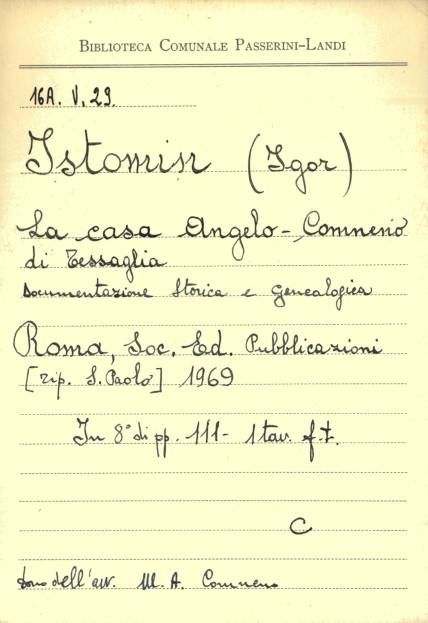 BIBLIOTECA COMUNALE PASSERINI-LANDI
16A. V. 29.
Istomin (Igor)
La casa Angelo-Comneno
di Tessaglia
Documentazione Storica e Genealogica
Roma, Soc. Ed. Pubblicazioni
[tip. S. Paolo] 1969
In 8° di pp. 111- 1 tav. f.t.
C
dono dell'avv. M. A. Comneno